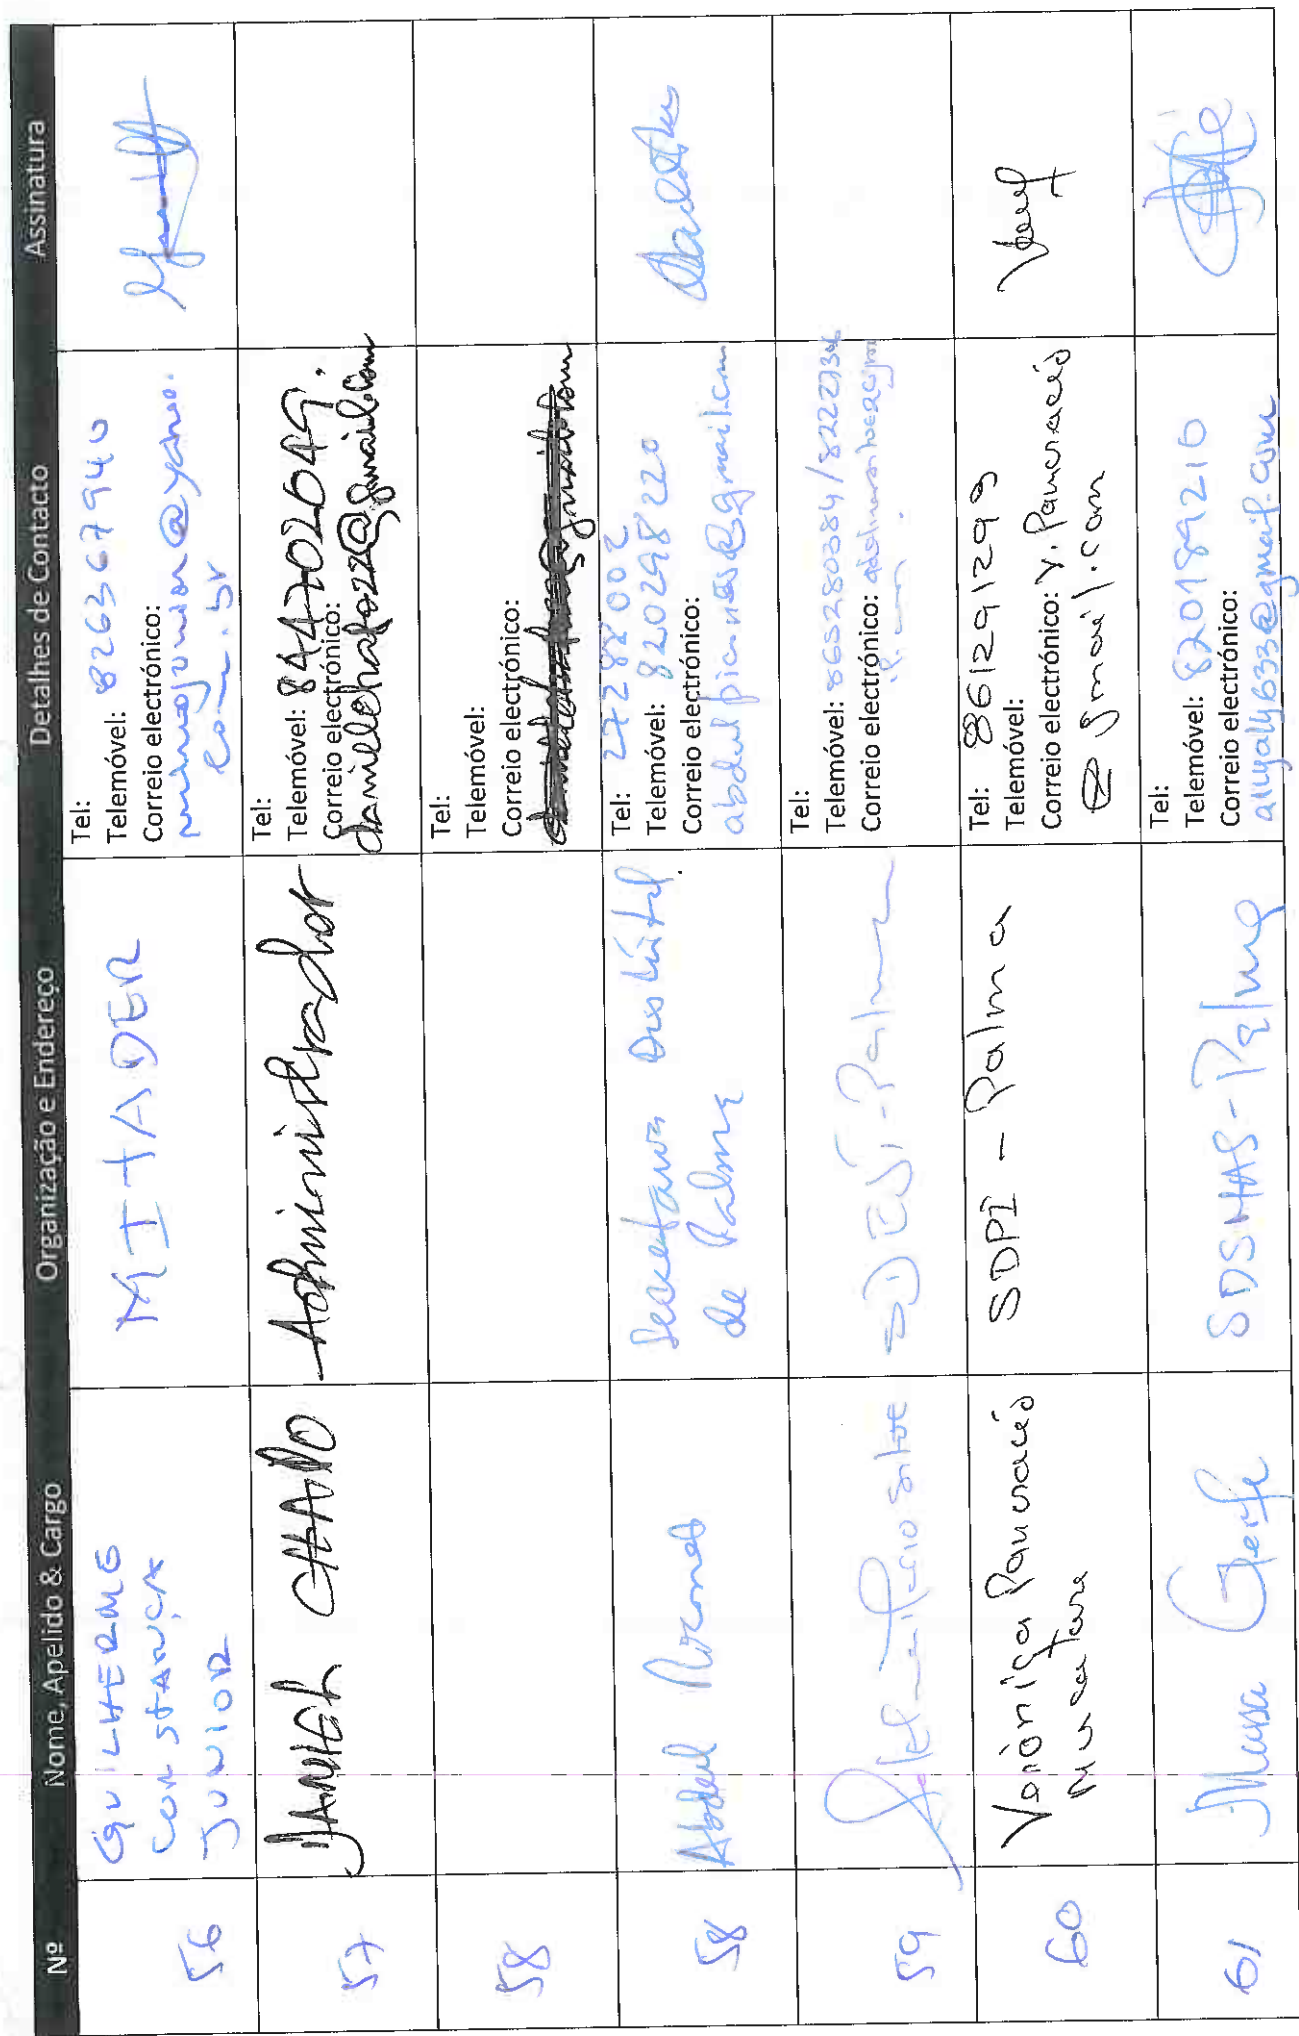 Nº Nome, Apelido & Cargo Organização e Endereço Detalhes de Contacto Assinatura
56
GUILHERME
CONSTANÇA
JUNIOR
MITADER
Tel:
Telemóvel: 826367940
Correio electrónico:
@yahoo.
com.br
57
DANIEL CHAPO
Administrador
Tel:
Telemóvel: 847702049.
Correio electrónico:
danielchapo22@gmail.com
58
Tel:
Telemóvel:
Correio electrónico:
58
Abdul
Secretaria Distrital
de Palma
Tel: 27288002
Telemóvel: 820298220
Correio electrónico:
@gmail.com
59
Sitoe
SDEJT-Palma
Tel:
Telemóvel: 865280384/
Correio electrónico:
60
Verónica Pancrácio
SDPI - Palma
Tel: 861291299
Telemóvel:
Correio electrónico: v.Pancracio
@gmail.com
61
Musa
SDSMAS-Palma
Tel:
Telemóvel: 820189210
Correio electrónico:
allyally633@gmail.com